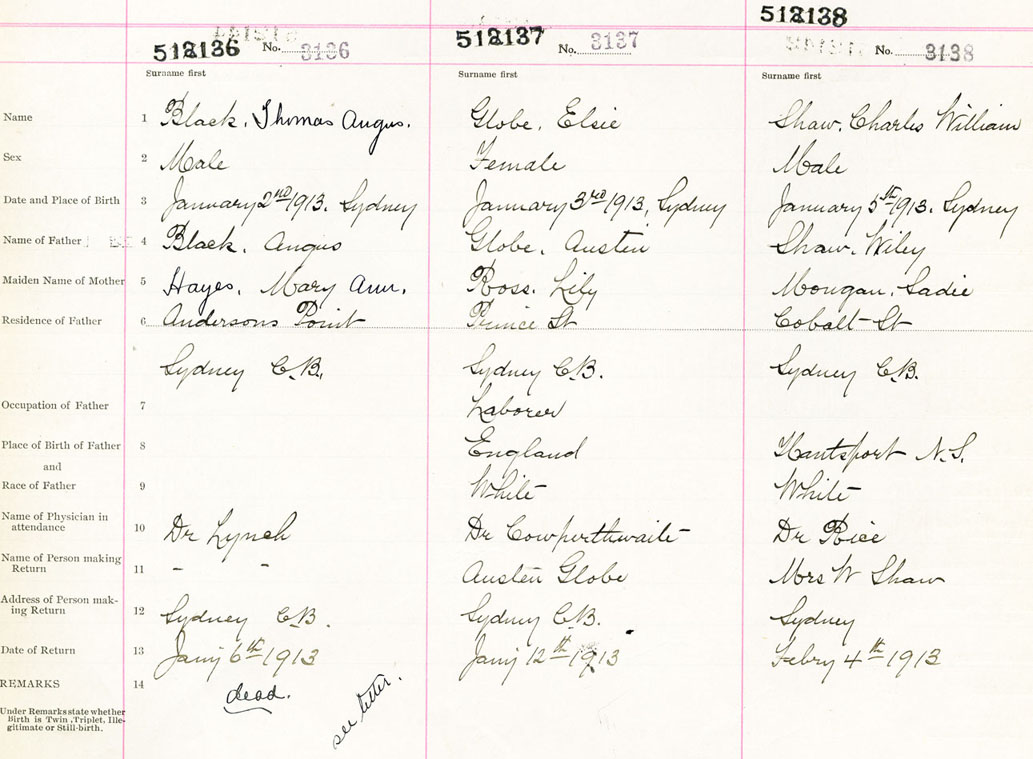 512136 No. 3136 512137 No. 3137 512138 No. 3138
Surname first Surname first Surname first
Name 1 Black, Thomas Angus. Globe, Elsie Shaw, Charles William
Sex 2 Male Female Male
Date and Place of Birth 3 January 2nd 1913. Sydney January 3rd 1913, Sydney January 5th 1913. Sydney
Name of Father 4 Black, Angus Globe, Austen Shaw, Wiley
Maiden Name of Mother 5 Hayes, Mary Ann. Ross. Lily Mongan, Sadie
Residence of Father 6 Andersons Point Prince St Cobalt St
Sydney C.B. Sydney C.B. Sydney C.B.
Occupation of Father 7 Laborer
Place of Birth of Father 8 England Hantsport N.S.
and
Race of Father 9 White White
Name of Physician in
attendance 10 Dr Lynch Dr Cowperthwaite Dr Rice
Name of Person making
Return 11 - - Austen Globe Mrs W Shaw
Address of Person mak-
ing Return 12 Sydney C.B. Sydney C.B. Sydney
Date of Return 13 Jany 6th 1913 Jany 12th 1913 Febry 4th 1913
REMARKS 14 dead. see letter.
Under Remarks state whether
Birth is Twin, Triplet, Ille-
gitimate or Still-birth.